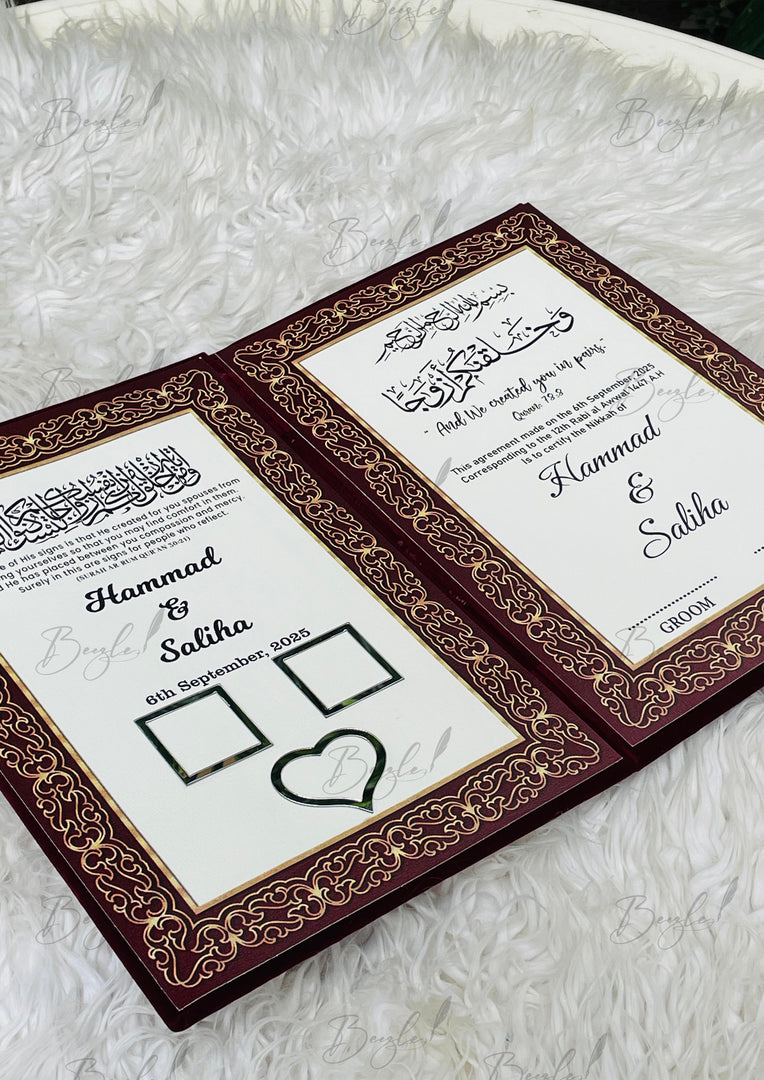 of His signs is that He created for you spouses from
yourselves so that you may find comfort in them.
He has placed between you compassion and mercy.
Surely in this are signs for people who reflect.
(SURAH AR RUM QUR'AN 30:21)
Hammad
&
Saliha
6th September, 2025
بسم الله الرحمن الرحيم
وَخَلَقْنَٰكُمْ أَزْوَٰجًا
"And We created you in pairs."
Quran: 78:8
This agreement made on the 6th September, 2025
Corresponding to the 12th Rabi al Awwal 1447 A.H
Is to certify the Nikkah of
Hammad
&
Saliha
GROOM